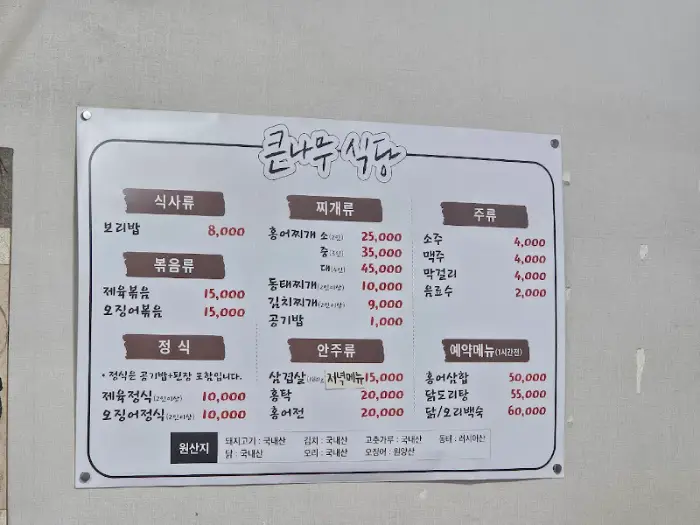 큰나무 식당
식사류
보리밥 8,000
볶음류
제육볶음 15,000
오징어볶음 15,000
정 식
* 정식은 공기밥+된장 포함입니다.
제육정식(2인이상) 10,000
오징어정식(2인이상) 10,000
찌개류
홍어찌개 소(2인) 25,000
중(3인) 35,000
대(4인) 45,000
동태찌개(2인이상) 10,000
김치찌개(2인이상) 9,000
공기밥 1,000
안주류
삼겹살(180g) 저녁메뉴 15,000
홍탁 20,000
홍어전 20,000
주류
소주 4,000
맥주 4,000
막걸리 4,000
음료수 2,000
예약메뉴(1시간전)
홍어삼합 50,000
닭도리탕 55,000
닭/오리백숙 60,000
원산지
돼지고기 : 국내산 김치 : 국내산 고춧가루 : 국내산 동태 : 러시아산
닭 : 국내산 오리 : 국내산 오징어 : 원양산